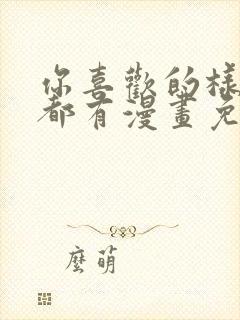 你喜歡的樣
都有漫畫免
麼萌